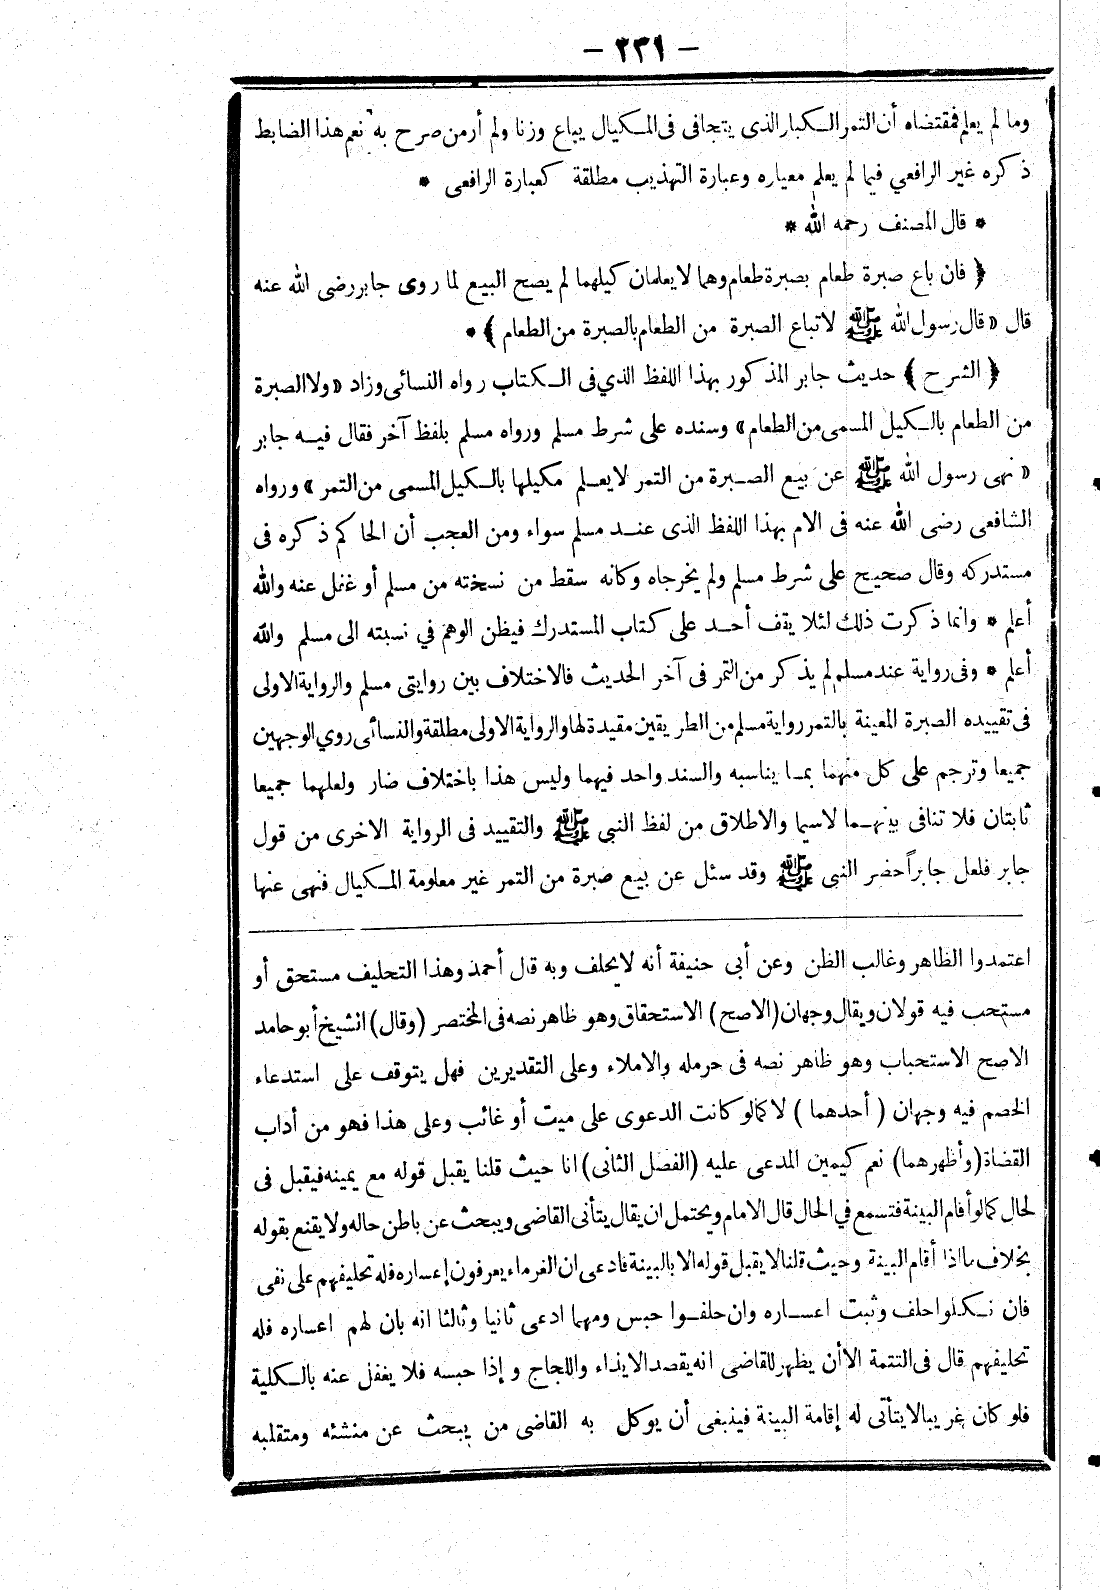 - ٢٣١ -
وما لم يعلم فمقتضاه أن التمر الكبار الذى يتجافى فى المكيال يباع وزنا ولم أر من صرح به نعم هذا الضابط
ذكره غير الرافعي فيما لم يعلم معياره وعبارة التهذيب مطلقة كعبارة الرافعى *
* قال المصنف رحمه الله *
﴿ فان باع صبرة طعام بصبرة طعام وهما لا يعلمان كيلهما لم يصح البيع لما روى جابر رضى الله عنه
قال « قال رسول الله ﷺ لا تباع الصبرة من الطعام بالصبرة من الطعام ﴾ *
﴿ الشرح ﴾ حديث جابر المذكور بهذا اللفظ الذي فى الكتاب رواه النسائى وزاد « ولا الصبرة
من الطعام بالكيل المسمى من الطعام » وسنده على شرط مسلم ورواه مسلم بلفظ آخر فقال فيه جابر
« نهى رسول الله ﷺ عن بيع الصبرة من التمر لا يعلم مكيلها بالكيل المسمى من التمر » ورواه
الشافعى رضى الله عنه فى الام بهذا اللفظ الذى عند مسلم سواء ومن العجب أن الحاكم ذكره فى
مستدركه وقال صحيح على شرط مسلم ولم يخرجاه وكانه سقط من نسخته من مسلم أو غفل عنه والله
أعلم * وانما ذكرت ذلك لئلا يقف أحد على كتاب المستدرك فيظن الوهم في نسبته الى مسلم والله
أعلم * وفى رواية عند مسلم لم يذكر من التمر فى آخر الحديث فالاختلاف بين روايتى مسلم والرواية الاولى
فى تقييده الصبرة المعينة بالتمر رواية مسلم من الطريقين مقيدة لها والرواية الاولى مطلقة والنسائى روي الوجهين
جميعا وترجم على كل منهما بما يناسبه والسند واحد فيهما وليس هذا باختلاف ضار ولعلهما جميعا
ثابتان فلا تنافى بينهما لاسيما والاطلاق من لفظ النبى ﷺ والتقييد فى الرواية الاخرى من قول
جابر فلعل جابراً حضر النبى ﷺ وقد سئل عن بيع صبرة من التمر غير معلومة المكيال فنهى عنها
اعتمدوا الظاهر وغالب الظن وعن أبى حنيفة أنه لا يحلف وبه قال أحمد وهذا التحليف مستحق أو
مستحب فيه قولان ويقال وجهان (الاصح) الاستحقاق وهو ظاهر نصه فى المختصر (وقال) الشيخ أبو حامد
الاصح الاستحباب وهو ظاهر نصه فى حرمله والاملاء وعلى التقديرين فهل يتوقف على استدعاء
الخصم فيه وجهان ( أحدهما ) لا كما لو كانت الدعوى على ميت أو غائب وعلى هذا فهو من أداب
القضاة (وأظهرهما) نعم كيمين المدعى عليه (الفصل الثانى) انا حيث قلنا يقبل قوله مع يمينه فيقبل فى
لحال كما لو أقام البينة فتسمع في الحال قال الامام ويحتمل ان يقال يتأنى القاضى ويبحث عن باطن حاله ولا يقنع بقوله
بخلاف ما اذا أقام البينة وحيث قلنا لا يقبل قوله الا بالبينة فادعى ان الغرماء يعرفون إعساره فله تحليفهم على نفى
فان نكلوا حلف وثبت اعساره وان حلفوا حبس ومهما ادعى ثانيا وثالثا انه بان لهم اعساره فله
تحليفهم قال فى التتمة الا أن يظهر للقاضى انه يقصد الايذاء واللجاج و إذا حبسه فلا يغفل عنه بالكلية
فلو كان غريبا لا يتأتى له إقامة البينة فينبغى أن يوكل به القاضى من يبحث عن منشئه ومتقلبه